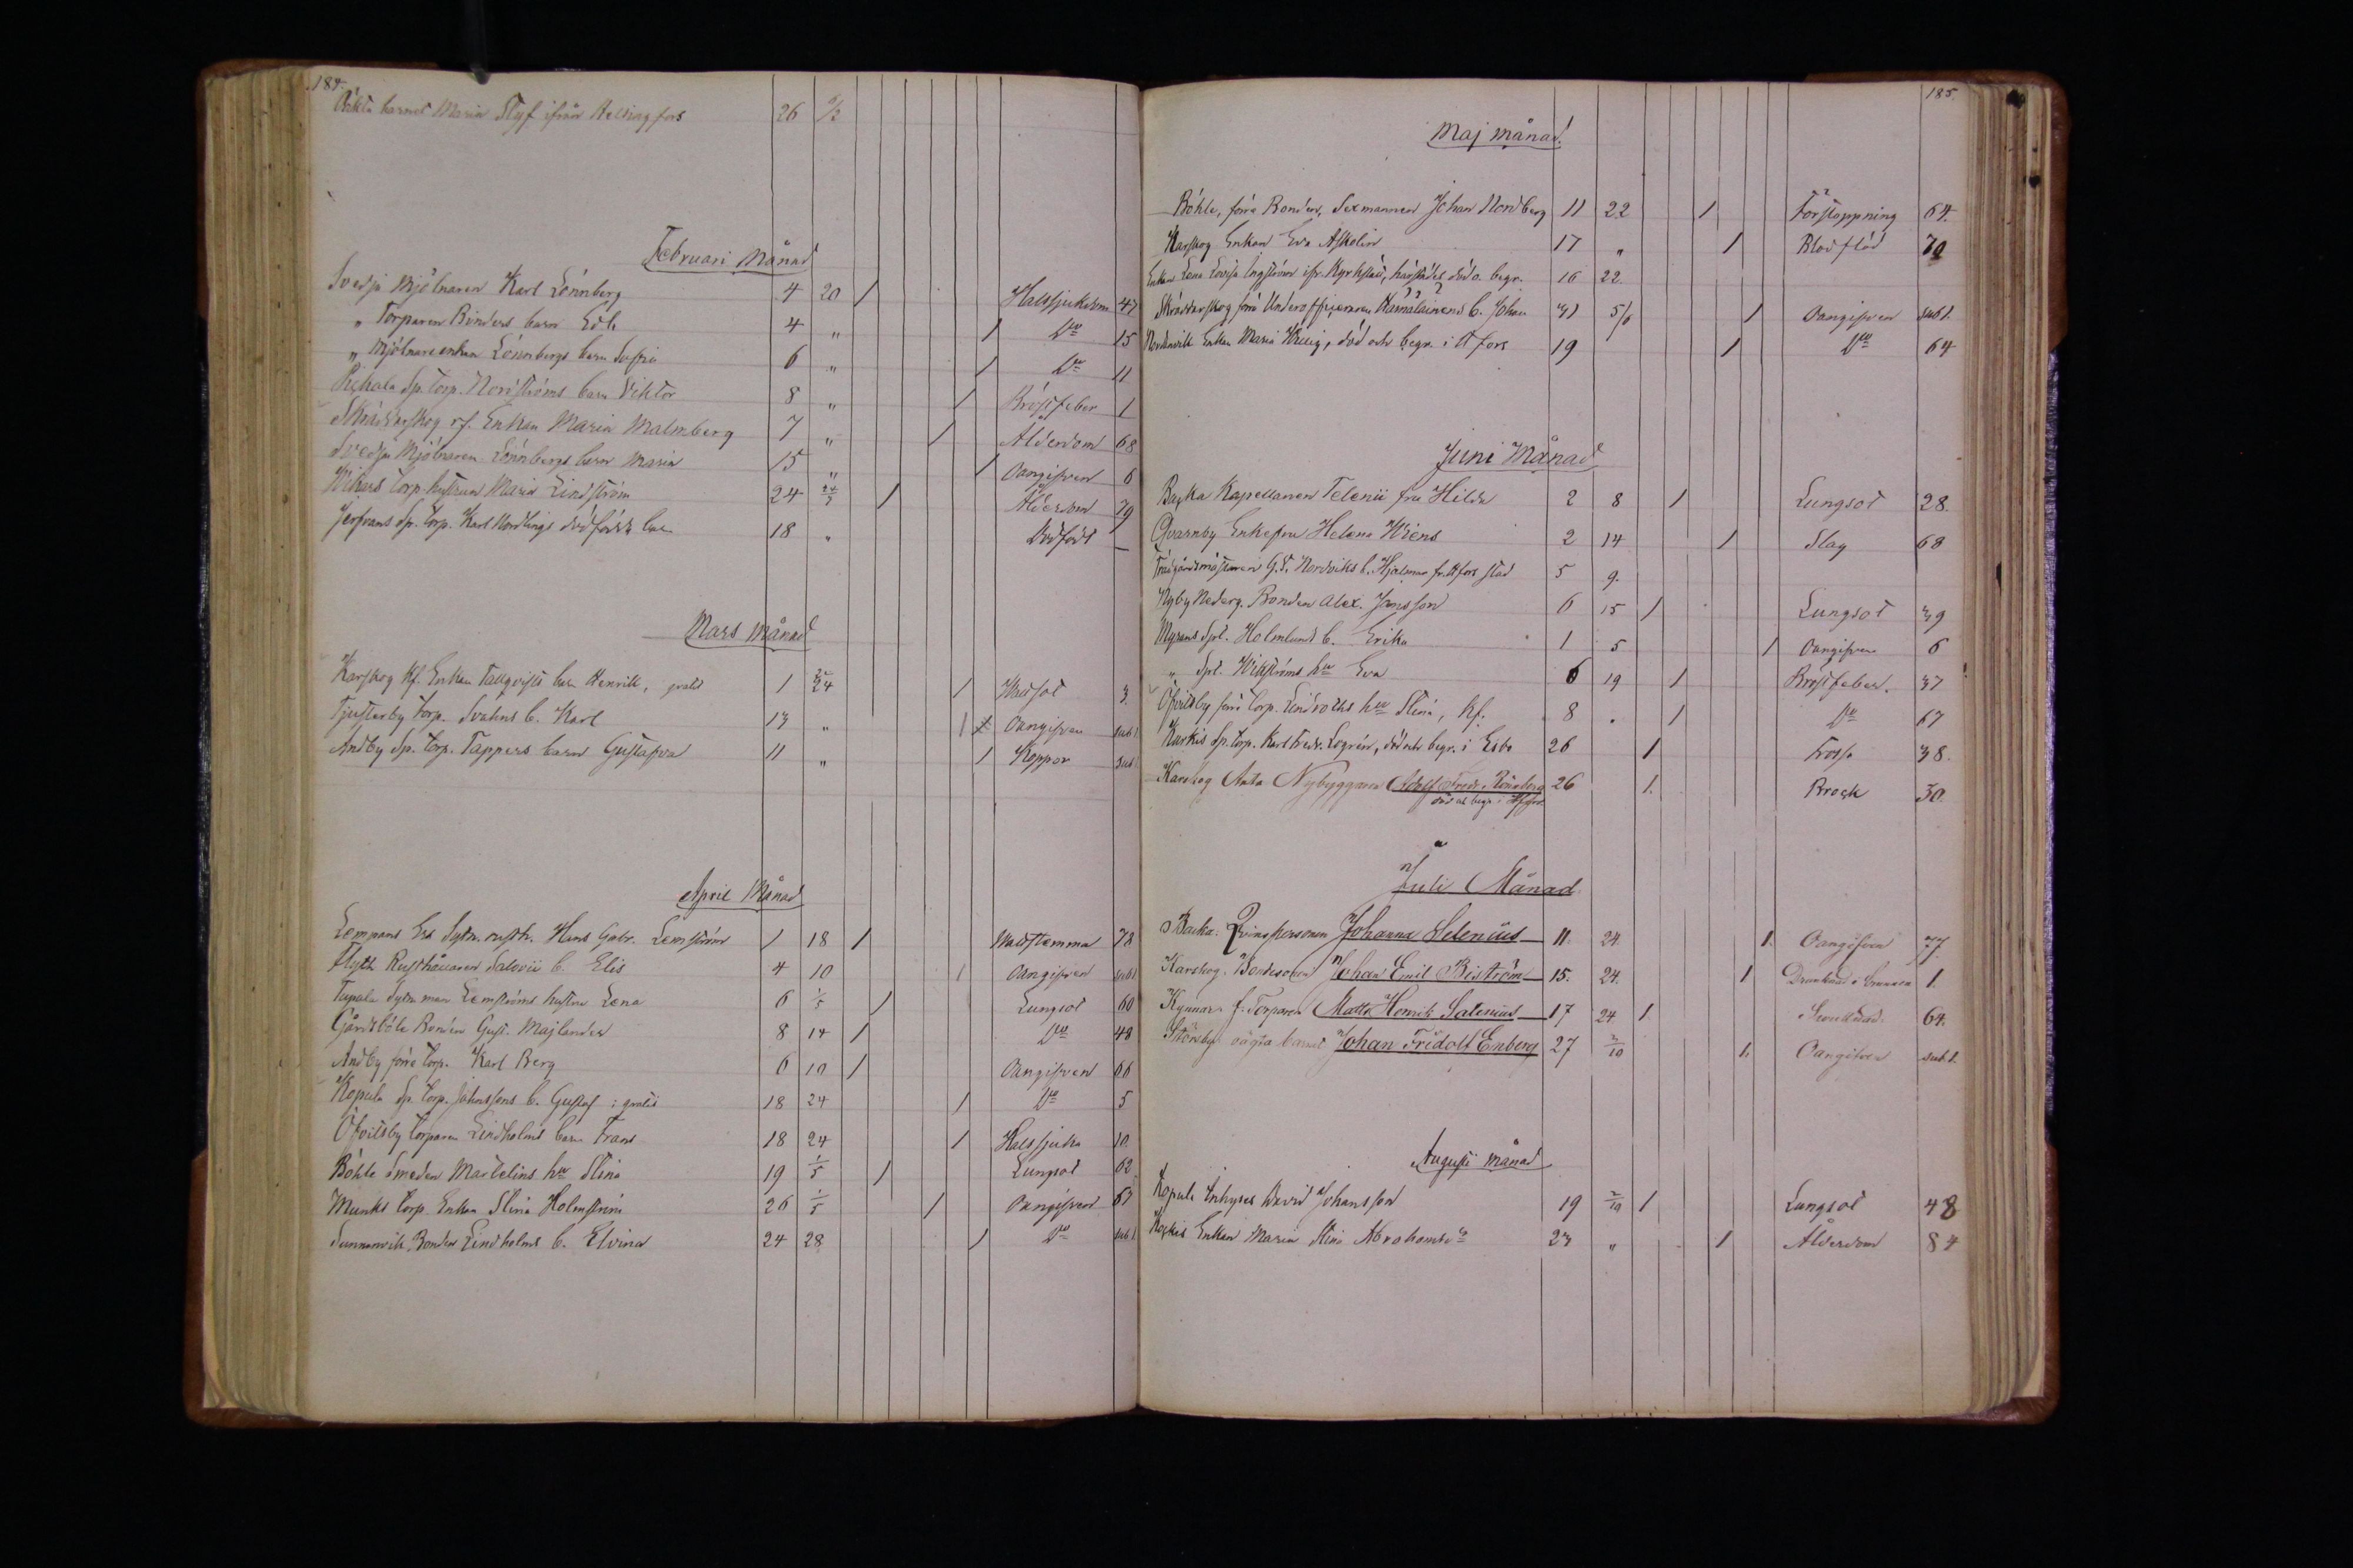 184.
Oäkta barnet Maria Styf ifrån Helsingfors 26 6/2
Februari Månad
Svedja Mjölnaren Karl Lönnberg 4 20 / Halssjukdom 47
„ Torparen Binders barn Edla 4 „ / Do 15
„ Mjölnareenkan Lönnbergs barn Sofia 6 „ / Do 11
Sp. Torp. Nordströms barn Viktor 8 „ / Bröstfeber 1
Skräddarskog rf. Enkan Maria Malmberg 7 „ / Ålderdom 68
Svedja Mjölnaren Lönnbergs barn Maria 15 „ / Oangifven 6
Wikars torp. hustrun Maria Lindström 24 / Ålderdom 79
Sp. Torp. Karl Nordlings dödfödda barn 18 „ Dödfödt —
Mars månad
Karskog Kf. Enkan Tallqvists barn Henrik, gratis 1 24 / 3
Tjusterby Torp. Svahns b. Karl 13 „ / Oangifven
Andby Sp. Torp. Tappers barn Gustafva 11 „ / Koppor
April Månad
Lempans Hans Gabr. Lemström 1 18 / 78
Flyth Rusthållaren Salovii b. Elis 4 10 / Oangifven
Tapala Lemströms hustru Lena 6 1/5 / Lungsot 60
Gårdsböle Bonden Gust. Majlander 8 14 / Do 48
Andby förra torp. Karl Berg 6 10 / Oangifven 66
Kopula Sp. torp. Johnssons b. Gustaf : gratis 18 24 / Do 5
Öfvitsby torparen Lindholms barn Frans 18 24 / Halssjuka 10
Böhle Smeden Martelins hu Stina 19 1/5 / Lungsot 62
Munks torp. Enkan Stina Holmström 26 1/5 / Oangifven 63
Sunnanvik, Bonden Lindholms b. Elvina 24 28 / Do
185.
Maj månad.
Böhle, förra Bonden, Sexmannen Johan Nordberg 11 22 / Förstoppning 64.
Karskog Enkan Eva Askolin 17 „ / Blodflöd 70
Enkan Lena Lovisa Engström ifr. Kyrkslätt, härstädes död o. begr. 16 22
Skräddarskog förra Underofficeraren b. Johan 31 5/6 / Oangifven
Enkan Maria död och begr. i Hfors 19 / Do 64
Juni Månad
Backa Kapellanen Telenii fru Hilda 2 8 / Lungsot 28.
Qvarnby Enkefru Helena Wiens 2 14 / Slag 68
Trädgårdsmästaren G. E. Nordviks b. Hjalmar fr. Hfors stad 5 9.
Nyby Nederg. Bonden Alex. Jansson 6 15 / Lungsot 39
Myrans Spt. Holmlunds b. Erika 1 5 / Oangifven 6
„ Spt. Wikströms hu Eva 6 19 / Bröstfeber. 37
Öfvitsby förra torp. Lindroths hu Stina, Kf. 8 „ / Do 67
Kurkis Sp. torp. Karl Fredr. Logrén, död och begr. i Esbo 26 / 38.
Karskog Anta Nybyggaren Adolf Fredr. Rönnberg 26 /. Brock 30.
död och begr. i Hfors
Juli Månad
Backa. Qvinspersonen Johanna Selenius 11. 24. /. Oangifven 77.
Karskog. Bondesonen Johan Emil Biström 15. 24. / Drunknad i brunnen 1.
Kynnar f. Torparen Matts Henrik Salenius 17 24 /. 64.
Störsby oägta barnet Johan Fridolf Enberg 27 2/10 /. Oangifven
Augusti månad
Kopula Inhyses David Johansson 19 2/10 / Lungsot 48
Kockis Enkan Maria Stina Abrahamsdr 23 „ / Ålderdom 84